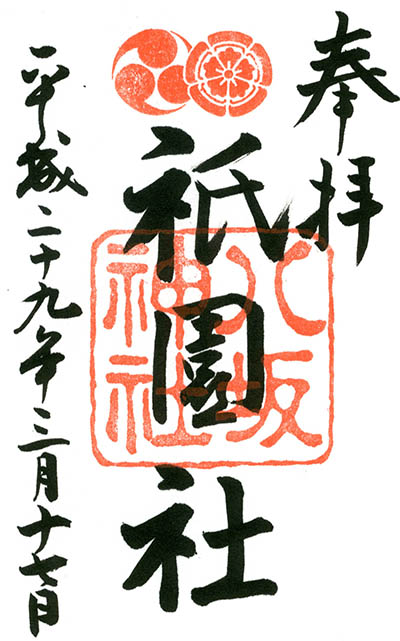 奉拝
祇園社
八坂
神社
平成二十九年三月十七日